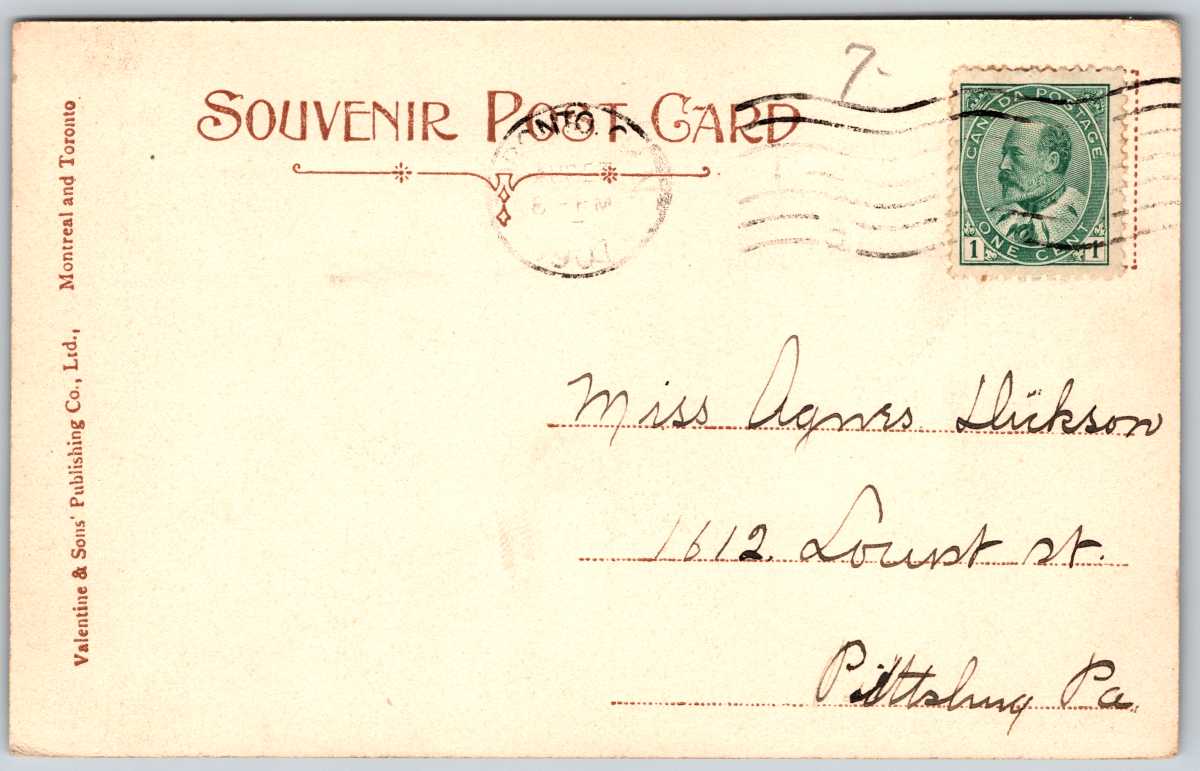 SOUVENIR POST CARD
7.
CANADA POSTAGE
ONE CENT
1 1
Valentine & Sons' Publishing Co., Ltd., Montreal and Toronto
Miss Agnes Dickson
1612. Locust st.
Pittsburg Pa.